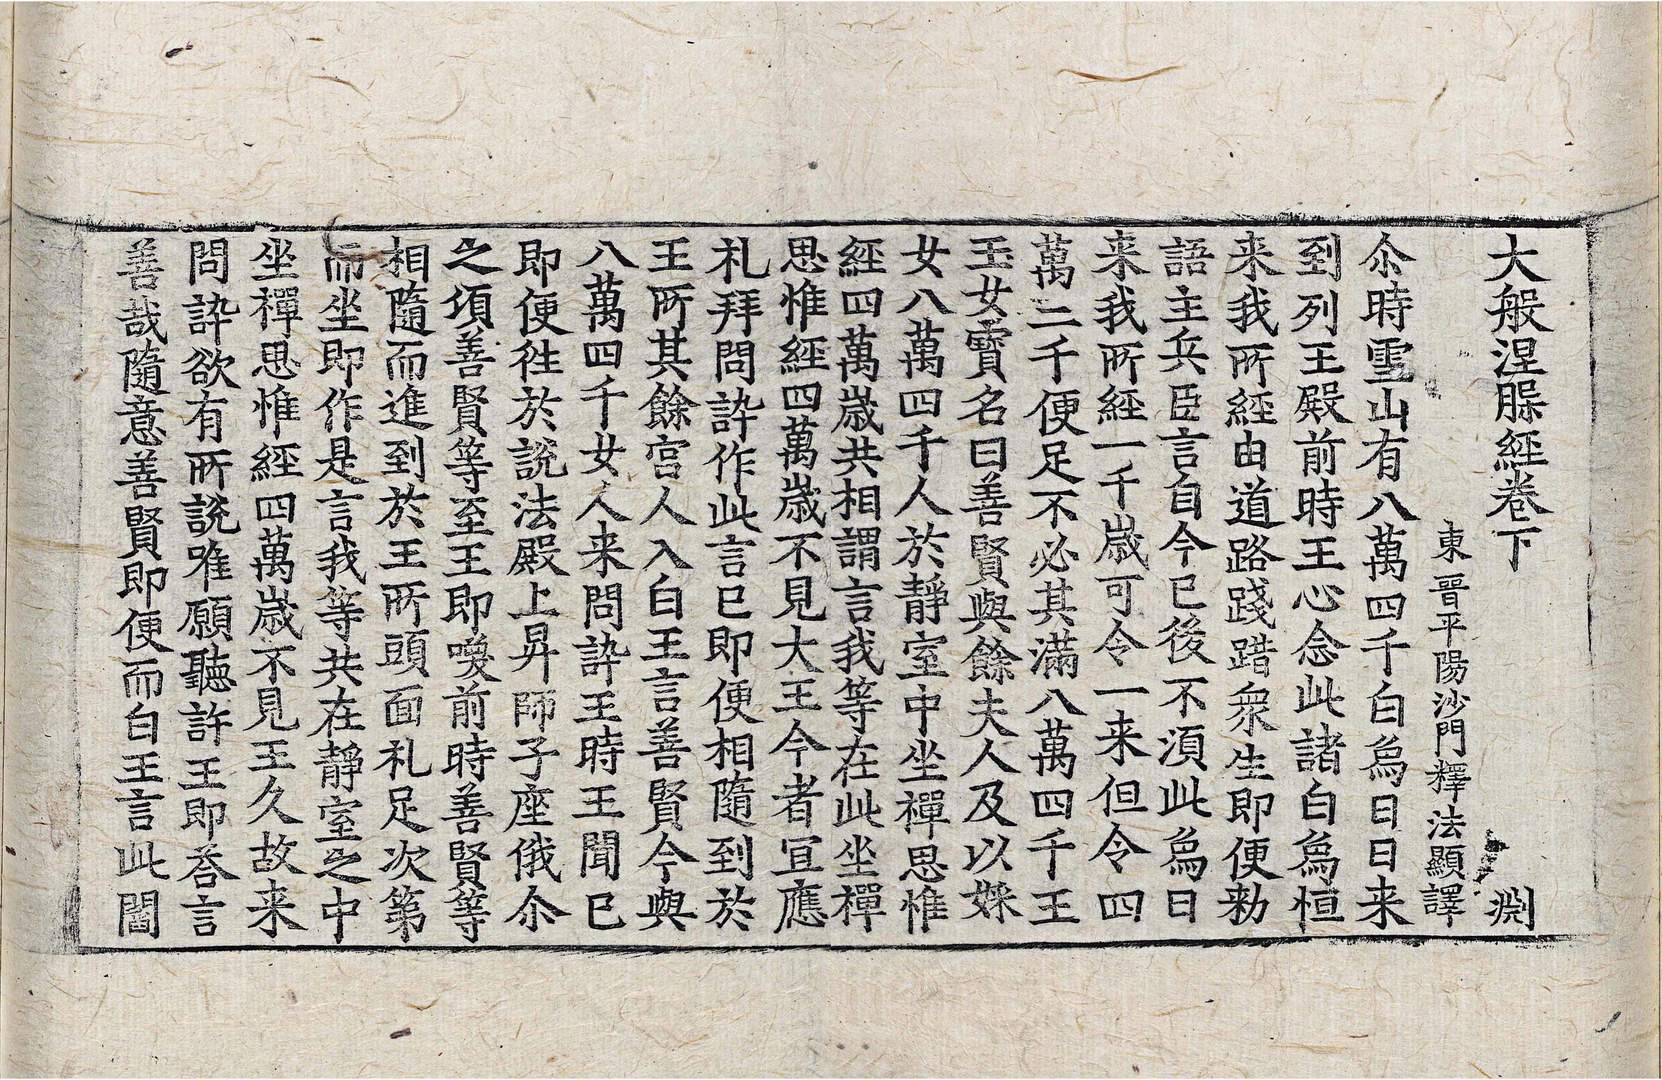 大般涅槃經卷下 淵
東晉平陽沙門釋法顯譯
尒時雪山有八萬四千白爲日日来
到列王殿前時王心念此諸白爲恒
来我所經由道路踐踖衆生即便勑
語主兵臣言自今已後不湏此爲日
来我所經一千歲可令一来但令四
萬二千便足不必其滿八萬四千王
玉女寶名曰善賢與餘夫人及以婇
女八萬四千人於靜室中坐禪思惟
經四萬歲共相謂言我等在此坐禪
思惟經四萬歲不見大王今者宜應
礼拜問訊作此言已即便相隨到於
王所其餘宫人入白王言善賢今與
八萬四千女人来問訊王時王聞已
即便徃於說法殿上昇師子座俄尒
之湏善賢等至王即喚前時善賢等
相隨而進到於王所頭面礼足次第
而坐即作是言我等共在靜室之中
坐禪思惟經四萬歲不見王久故来
問訊欲有所說唯願聽許王即荅言
善哉隨意善賢即便而白王言此閻